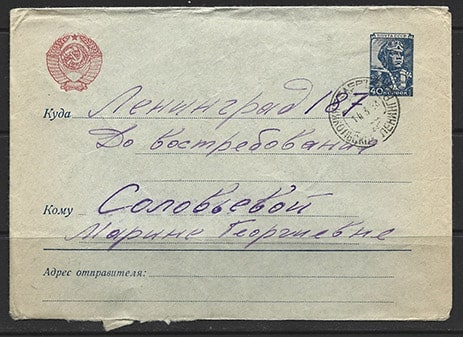 ПОЧТА СССР
40 КОПЕЕК
Куда Ленинград 187
До востребования
Кому Соловьевой
Марине Георгиевне
Адрес отправителя: